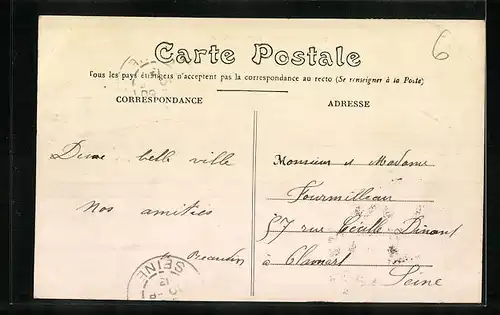 6
Carte Postale
Tous les pays étrangers n'acceptent pas la correspondance au recto (Se renseigner à la Poste)
CORRESPONDANCE
ADRESSE
belle ville
Nos amitiés
Monsieur et Madame
Fourmillian
57 rue Cécille Dinant
à Clamart
Seine
SEINE